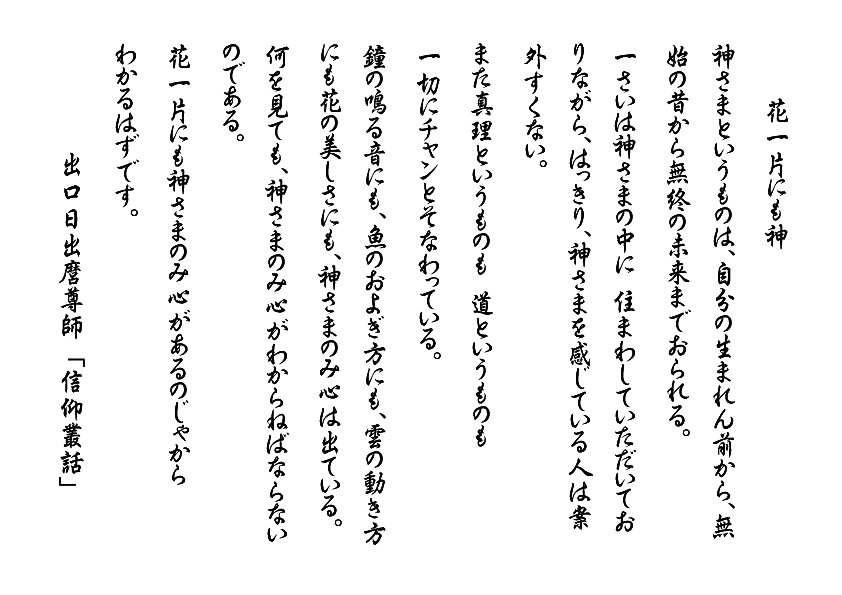 花一片にも神
神さまというものは、自分の生まれん前から、無
始の昔から無終の未来までおられる。
一さいは神さまの中に　住まわしていただいてお
りながら、はっきり、神さまを感じている人は案
外すくない。
また真理というものも　道というものも
一切にチャンとそなわっている。
鐘の鳴る音にも、魚のおよぎ方にも、雲の動き方
にも花の美しさにも、神さまのみ心は出ている。
何を見ても、神さまのみ心がわからねばならない
のである。
花一片にも神さまのみ心があるのじゃから
わかるはずです。
出口日出麿尊師「信仰叢話」